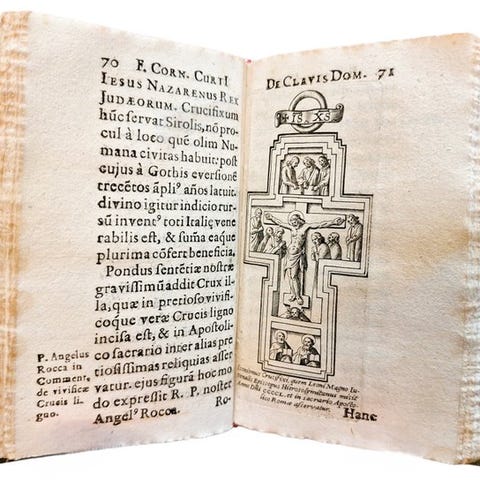 70 F. CORN. CURTI
IESUS NAZARENUS REX
JUDÆORUM. Crucifixum
hũc servat Sirolis, nõ pro-
cul à loco quẽ olim Nu-
mana civitas habuit: post
cujus à Gothis eversionẽ
trecẽtos ãpliꝰ años latuit.
divino igitur indicio rur-
sũ inventꝰ toti Italię vene
rabilis est, & sũma eaque
plurima cõfert beneficia.
Pondus sentẽtiæ nostræ
gravissimũ addit Crux il-
la, quæ in pretioso vivifi-
coque veræ Crucis ligno
incisa est, & in Apostoli-
co sacrario inter alias pre
tiosissimas reliquias asser
vatur. ejus figurã hoc mo
do expressit R. P. noster
Angelꝰ Rocca. Ro-
P. Angelus
Rocca in
Comment.
de vivificæ
Crucis li-
gno.
DE CLAVIS DOM. 71
IS XS
Crucifixi, quem Leoni Magno Iu-
venalis Episcopus Hierosolymitanus misit
Anno CCCCL. et in sacrario Aposto-
lico Romæ asservatur.
Hanc